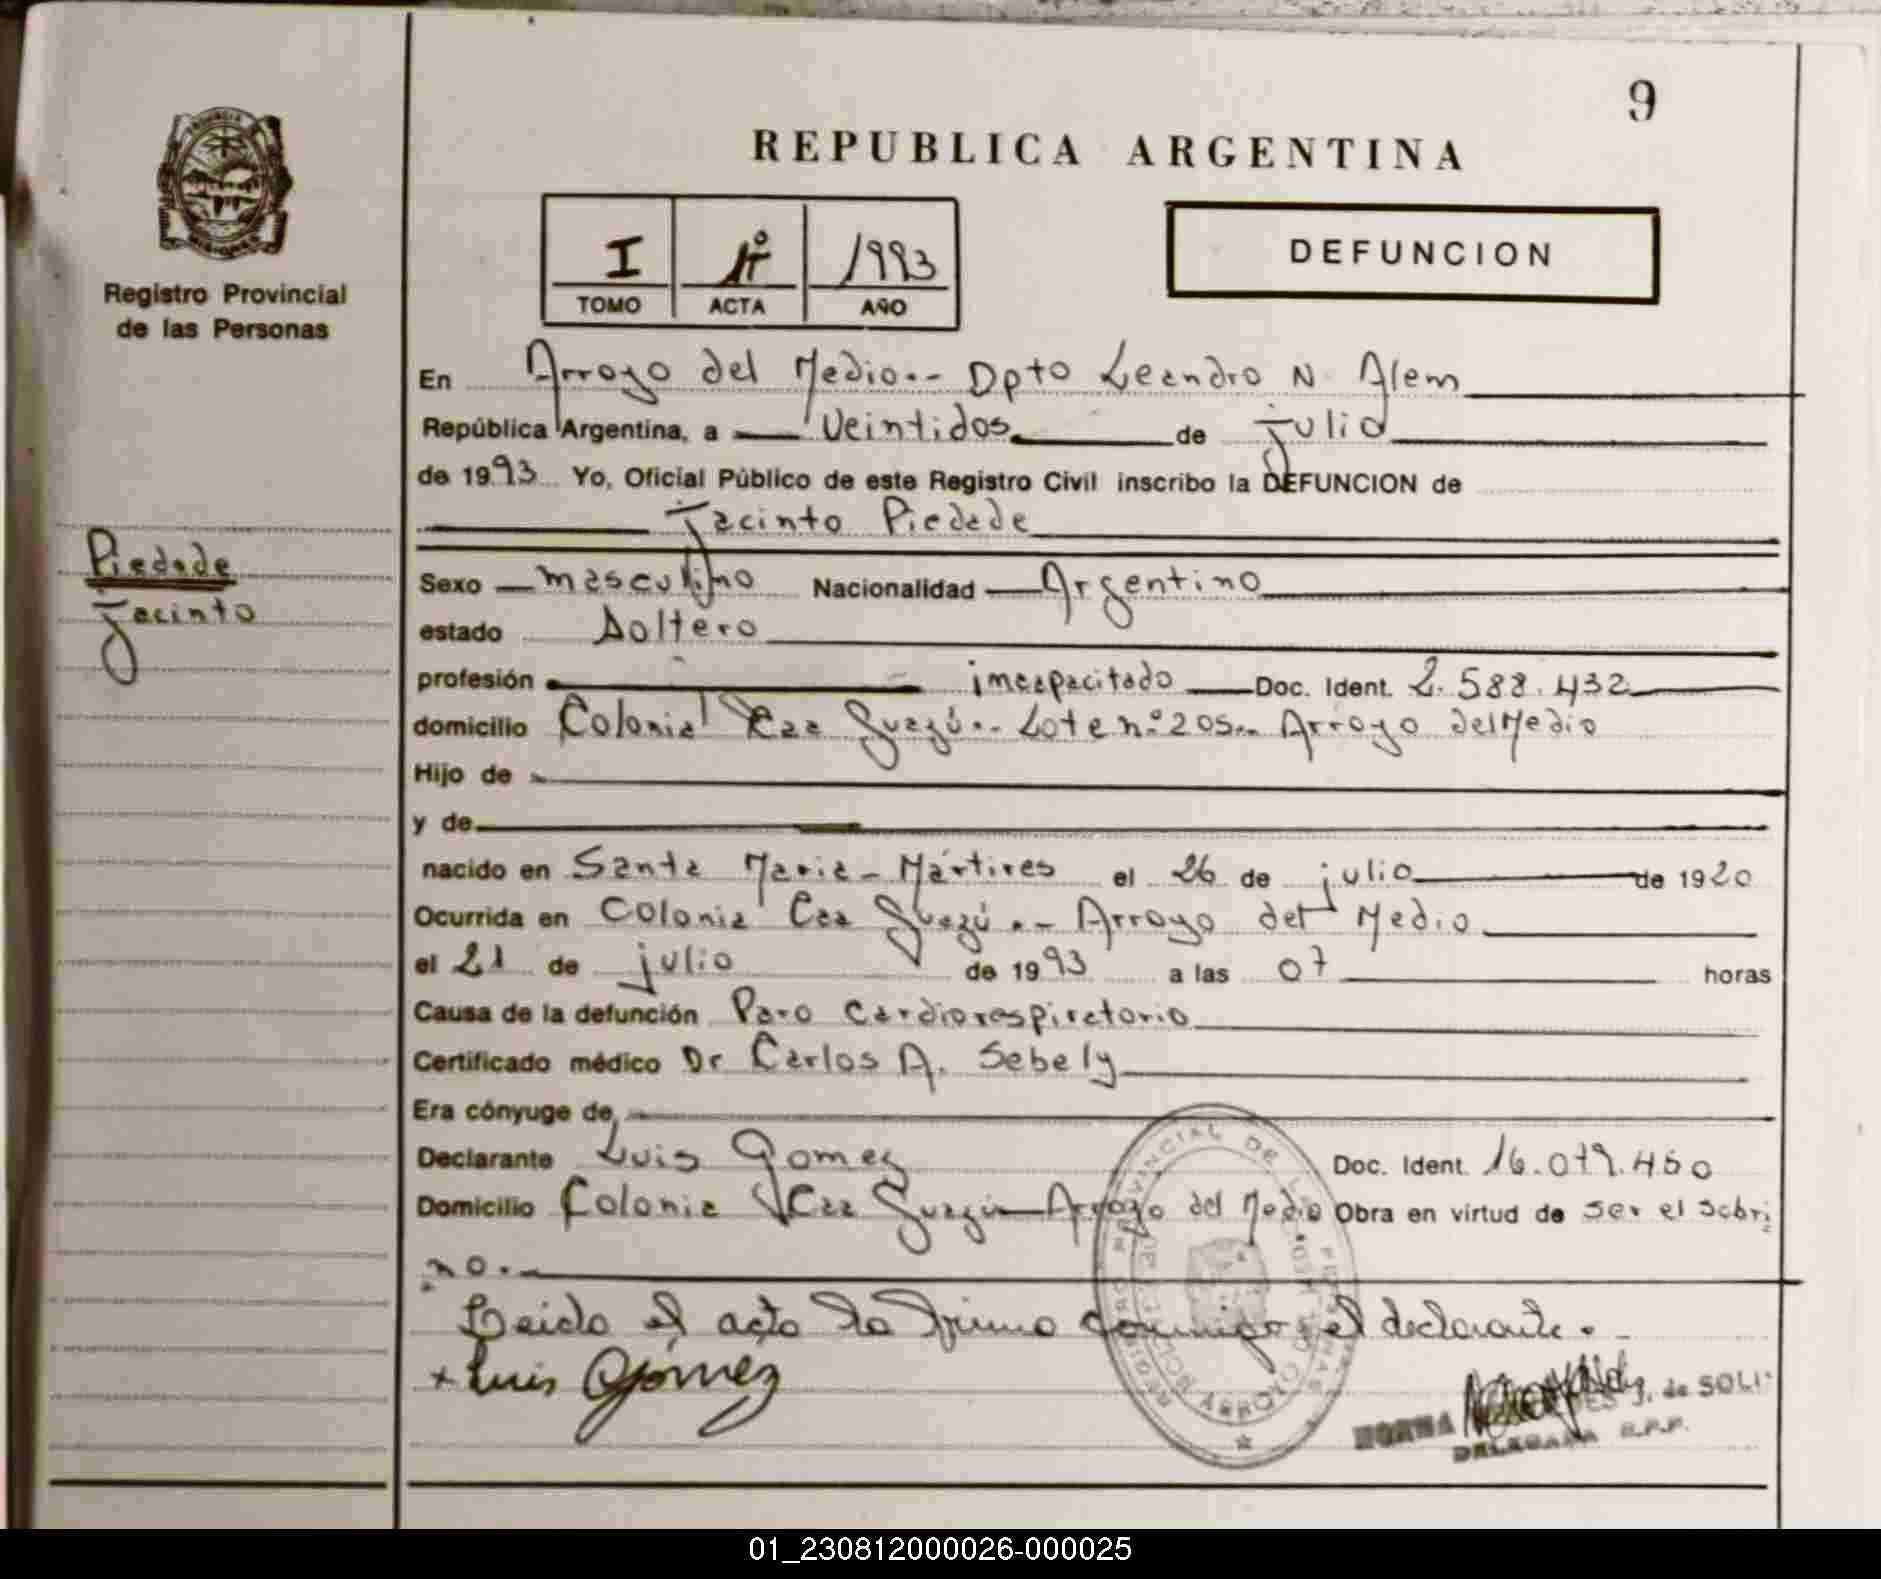 9
REPUBLICA ARGENTINA
Registro Provincial
de las Personas
I 1993
TOMO ACTA AÑO
DEFUNCION
En Arroyo del Medio.- Dpto Leandro N. Alem
República Argentina, a Veintidos de julio
de 1993 Yo, Oficial Público de este Registro Civil inscribo la DEFUNCION de
Jacinto Piedade
Piedade
Jacinto
Sexo masculino Nacionalidad Argentino
estado Soltero
profesión incapacitado Doc. Ident. 2.588.432
domicilio Colonia Caa Guazú.- Lote nº 205.- Arroyo del Medio
Hijo de
y de
nacido en Santa Maria - Mártires el 26 de julio de 1920
Ocurrida en Colonia Caa Guazú.- Arroyo del Medio
el 21 de julio de 1993 a las 07 horas
Causa de la defunción Paro Cardiorespiratorio
Certificado médico Dr Carlos A. Sebely
Era cónyuge de
Declarante Luis Gomez Doc. Ident. 16.079.450
Domicilio Colonia Caa Guazú - Arroyo del Medio Obra en virtud de ser el sobri
no.-
Leido el acta la firma conmigo el declarante.-
x Luis Gómez
REGISTRO PROVINCIAL DE LAS PERSONAS
ARROYO DEL MEDIO
NORMA J. de SOLI
DELEGADA R.P.P.
01_230812000026-000025